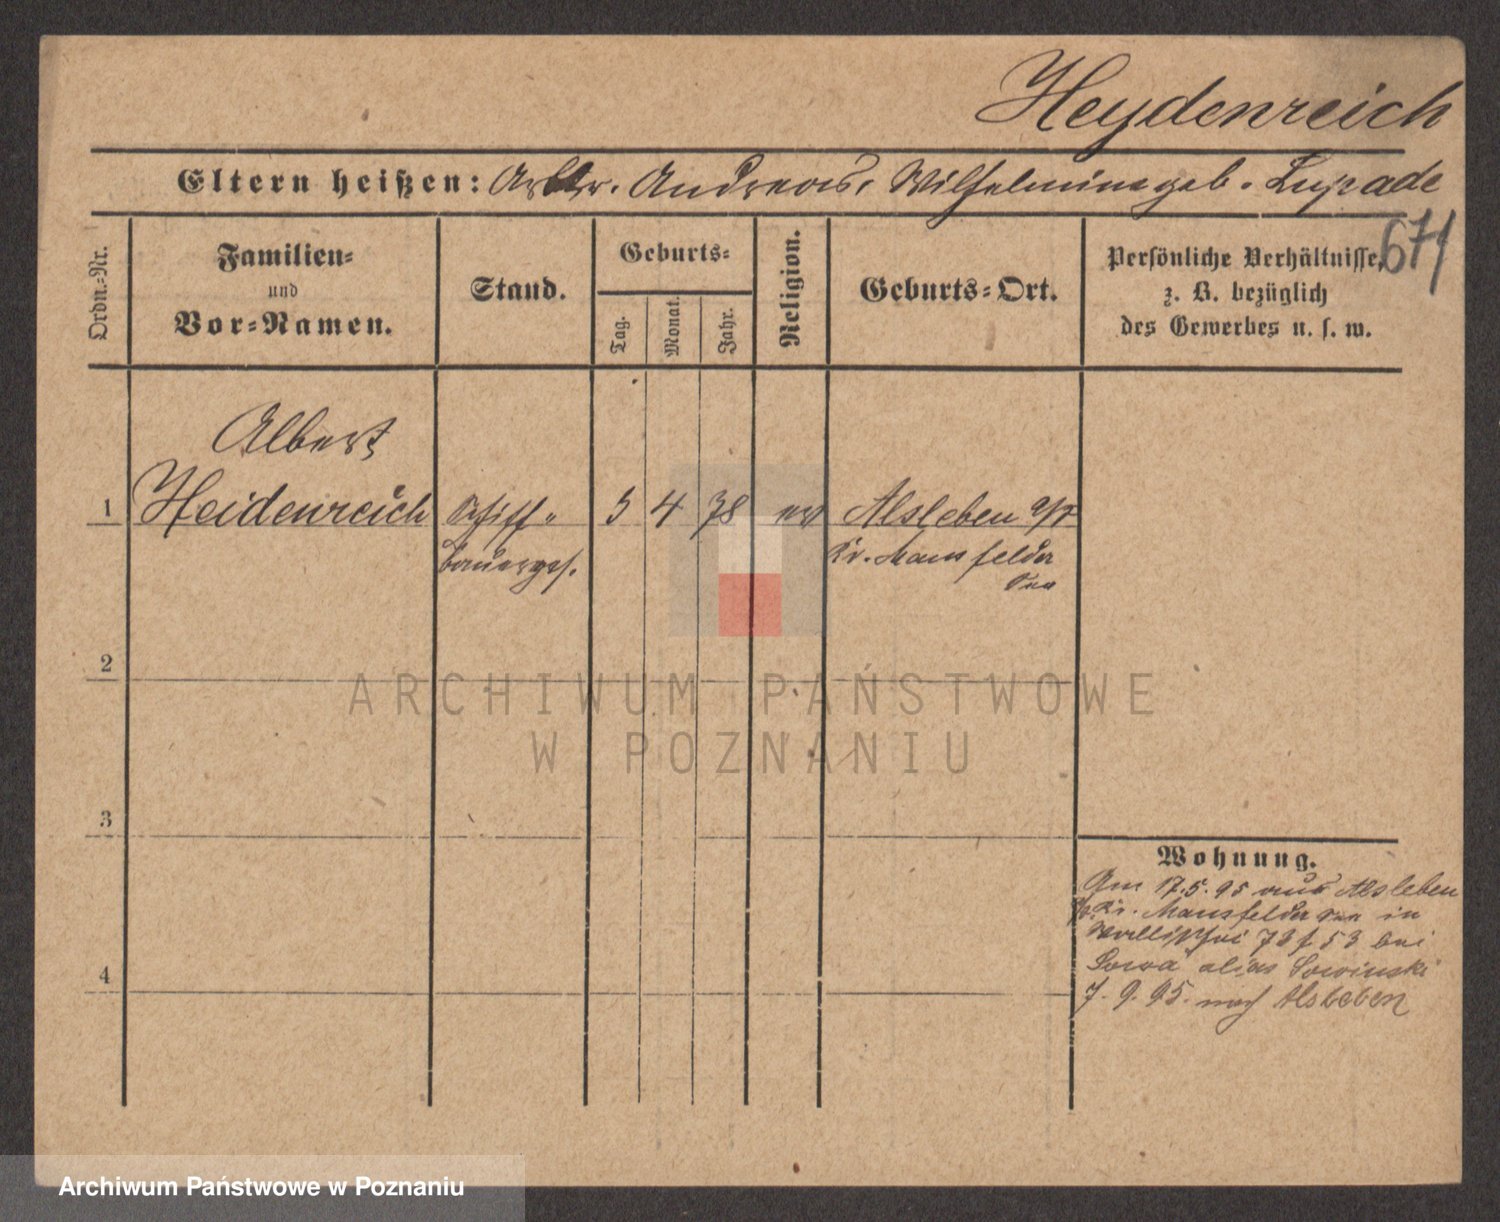 Heydenreich
Eltern heißen: Arbtr. Andreas, Wilhelmine geb. Lupade
671
Ordn.-Nr.
Familien-
und
Vor-Namen.
Stand.
Geburts-
Tag.
Monat.
Jahr.
Religion.
Geburts-Ort.
Persönliche Verhältnisse,
z. B. bezüglich
des Gewerbes u. s. w.
Albert
1 Heidenreich Schiff- 5 4 78 ev Alsleben a/S
bauerges. Kr. Mansfelder
See
2
ARCHIWUM PAŃSTWOWE
W POZNANIU
3
Wohnung.
Am 17.5.95 aus Alsleben
Kr. Mansfelder See in
Wallischei 73 f 53 bei
Sowa alias Sowinski
4
7.9.95. nach Alsleben
Archiwum Państwowe w Poznaniu